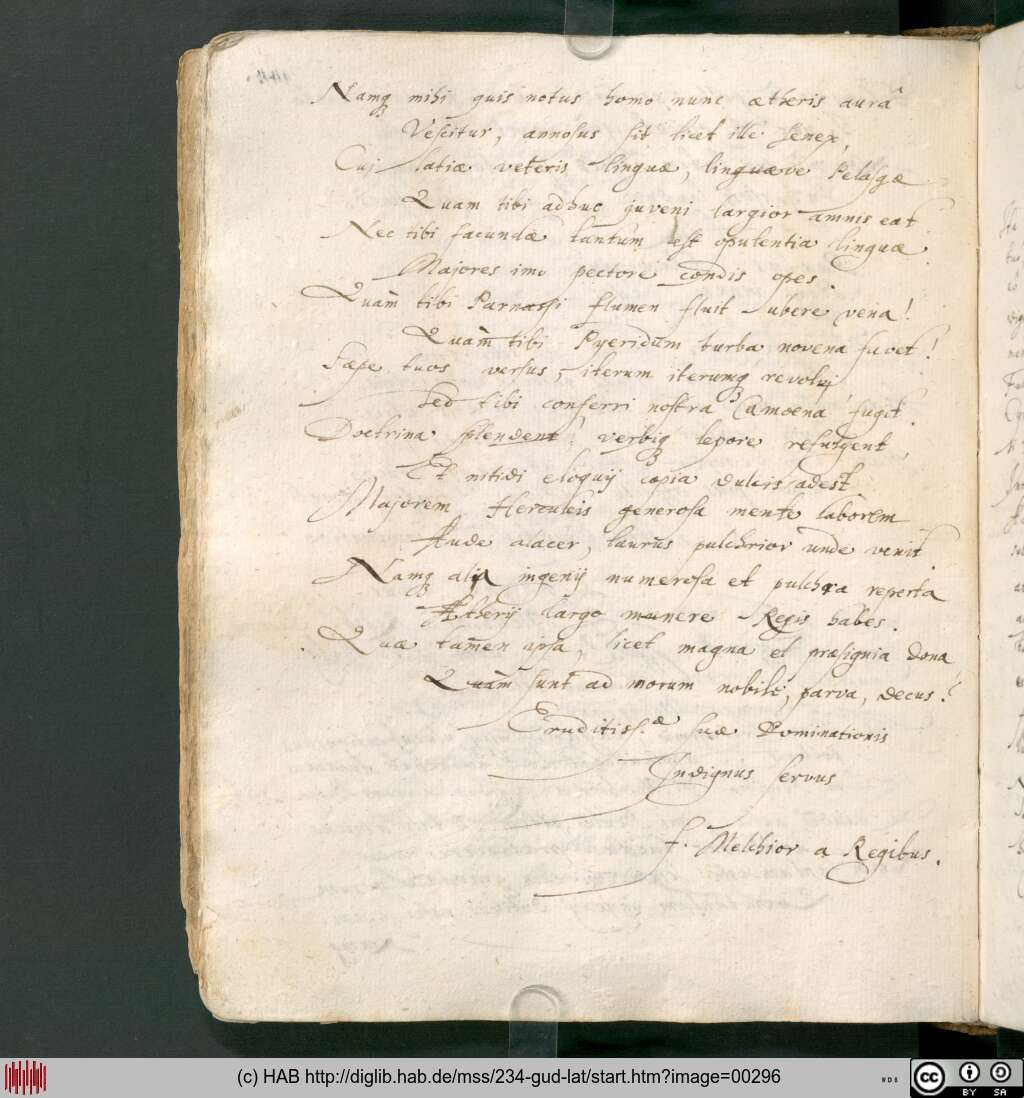 Namq mihi quis notus homo nunc ætheris aurâ
Vescitur, annosus sit licet ille senex,
Cuj Latiæ veteris linguæ, linguæve Pelasgæ
Quam tibi adhuc juveni largior amnis eat
Nec tibi facundæ tantùm est opulentia linguæ
Majores imo pectore condis opes.
Quàm tibi Parnassi flumen fluit ubere vena!
Quàm tibi Pyeridum turba novena favet!
Sæpe tuos versus, iterum iterumq revolvi
Sed tibi conferri nostra Camoena fugit.
Doctrina splendent, verbiq lepore refulgent,
Et nitidi eloquij copia dulcis adest
Majorem Herculeis generosa mente laborem
Aude alacer, laurus pulchrior unde venit
Namq alia ingenij numerosa et pulchra reperta
Ætherij largo munere Regis habes.
Quæ tamen ipsa, licet magna et præsignia dona
Quàm sunt ad morum nobile, parva, decus!
Eruditiss.æ suæ Dominationis
Indignus servus
f. Melchior a Regibus.
(c) HAB http://diglib.hab.de/mss/234-gud-lat/start.htm?image=00296
cc BY SA